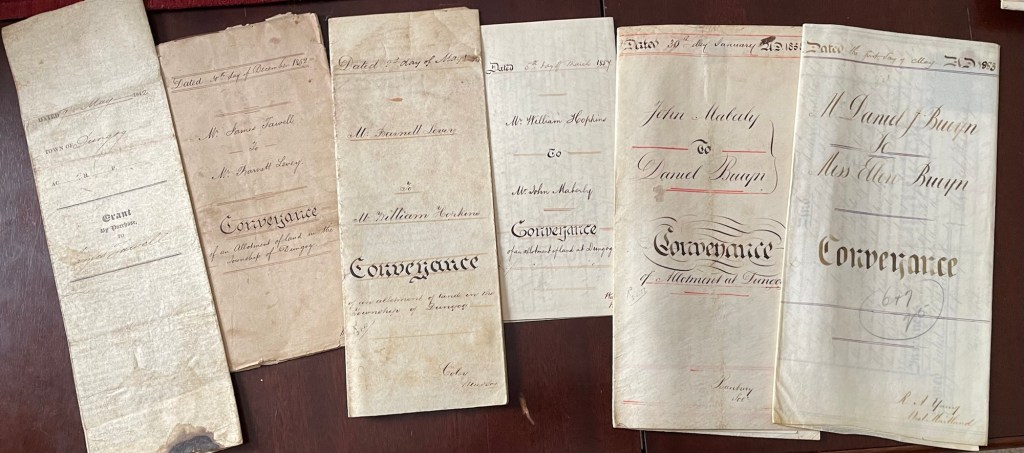 DATED May
TOWN OF Dungog
AC R P
Grant
By Purchase,
to
Dated day of December 1852
Mr James Tarvell
To
Mr Barnett Levey.
Conveyance
of an Allotment of land in the
Township of Dungog
Dated day of
Mr Barnett Levey
to
Mr William Hopkins
Conveyance
of an allotment of land in the
Township of Dungog
Dated 6th day of 1857
Mr William Hopkins
To
Mr John Maberly
Conveyance
of an allotment of land at Dungog
Dated 30th day January AD 185
John Maberly
To
Daniel Bruyn
Conveyance
of Allotment at Dungog
Dated the day of May AD
Mr Daniel J Bruyn
To
Miss Ellen Bruyn
Conveyance
R A Young
West Maitland